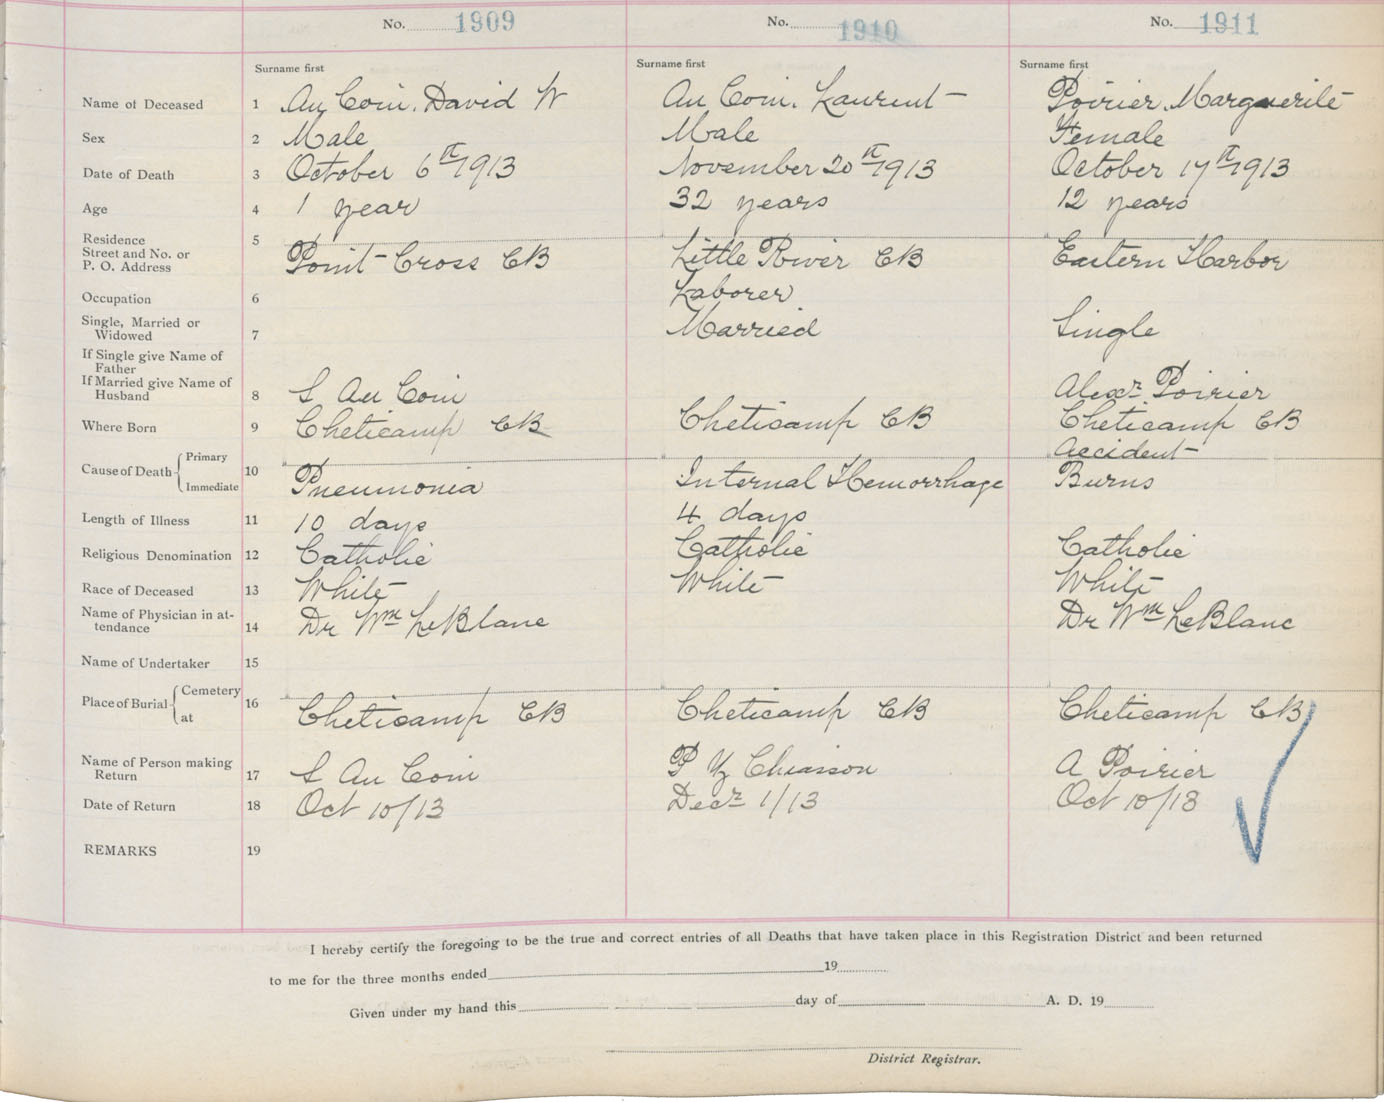 No. 1909 No. 1910 No. 1911
Surname first Surname first Surname first
Name of Deceased 1 Au Coin, David W Au Coin, Laurent Poirier, Marguerite
Sex 2 Male Male Female
Date of Death 3 October 6th 1913 November 20th 1913 October 17th 1913
Age 4 1 year 32 years 12 years
Residence
Street and No. or
P. O. Address 5 Point Cross CB Little River CB Eastern Harbor
Occupation 6 Laborer
Single, Married or
Widowed 7 Married Single
If Single give Name of
Father
If Married give Name of
Husband 8 S Au Coin Alexr Poirier
Where Born 9 Cheticamp CB Cheticamp CB Cheticamp CB
Cause of Death Primary 10 Accident
Immediate Pneumonia Internal Hemorrhage Burns
Length of Illness 11 10 days 4 days
Religious Denomination 12 Catholic Catholic Catholic
Race of Deceased 13 White White White
Name of Physician in at-
tendance 14 Dr Wm LeBlanc Dr Wm LeBlanc
Name of Undertaker 15
Place of Burial Cemetery 16
at Cheticamp CB Cheticamp CB Cheticamp CB
Name of Person making
Return 17 S Au Coin P Chiasson A Poirier
Date of Return 18 Oct 10/13 Decr 1/13 Oct 10/13
REMARKS 19
I hereby certify the foregoing to be the true and correct entries of all Deaths that have taken place in this Registration District and been returned
to me for the three months ended 19
Given under my hand this day of A. D. 19
District Registrar.